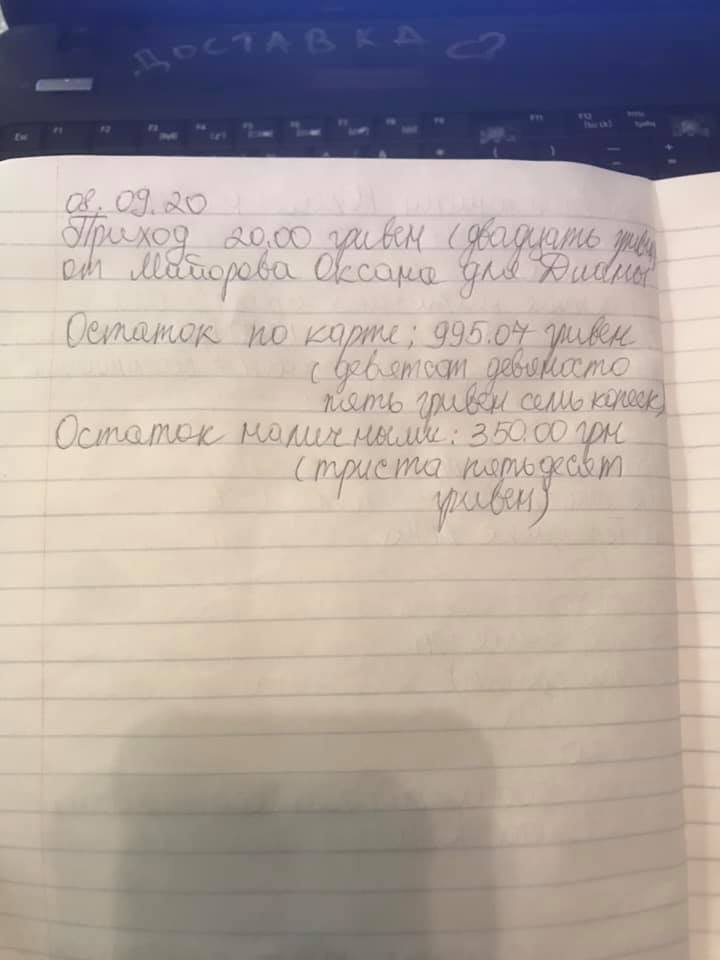 ДОСТАВКА
Esc F1 F2 F3 F4 F5 F6 F7 F8 F9 F11 F12
08.09.20
Приход 20.00 гривен (двадцать гривен)
от Майорова Оксана для Дианы
Остаток по карте: 995.07 гривен
(девятсот девяносто
пять гривен семь копеек)
Остаток наличными: 350.00 грн
(триста пятьдесят
гривен)